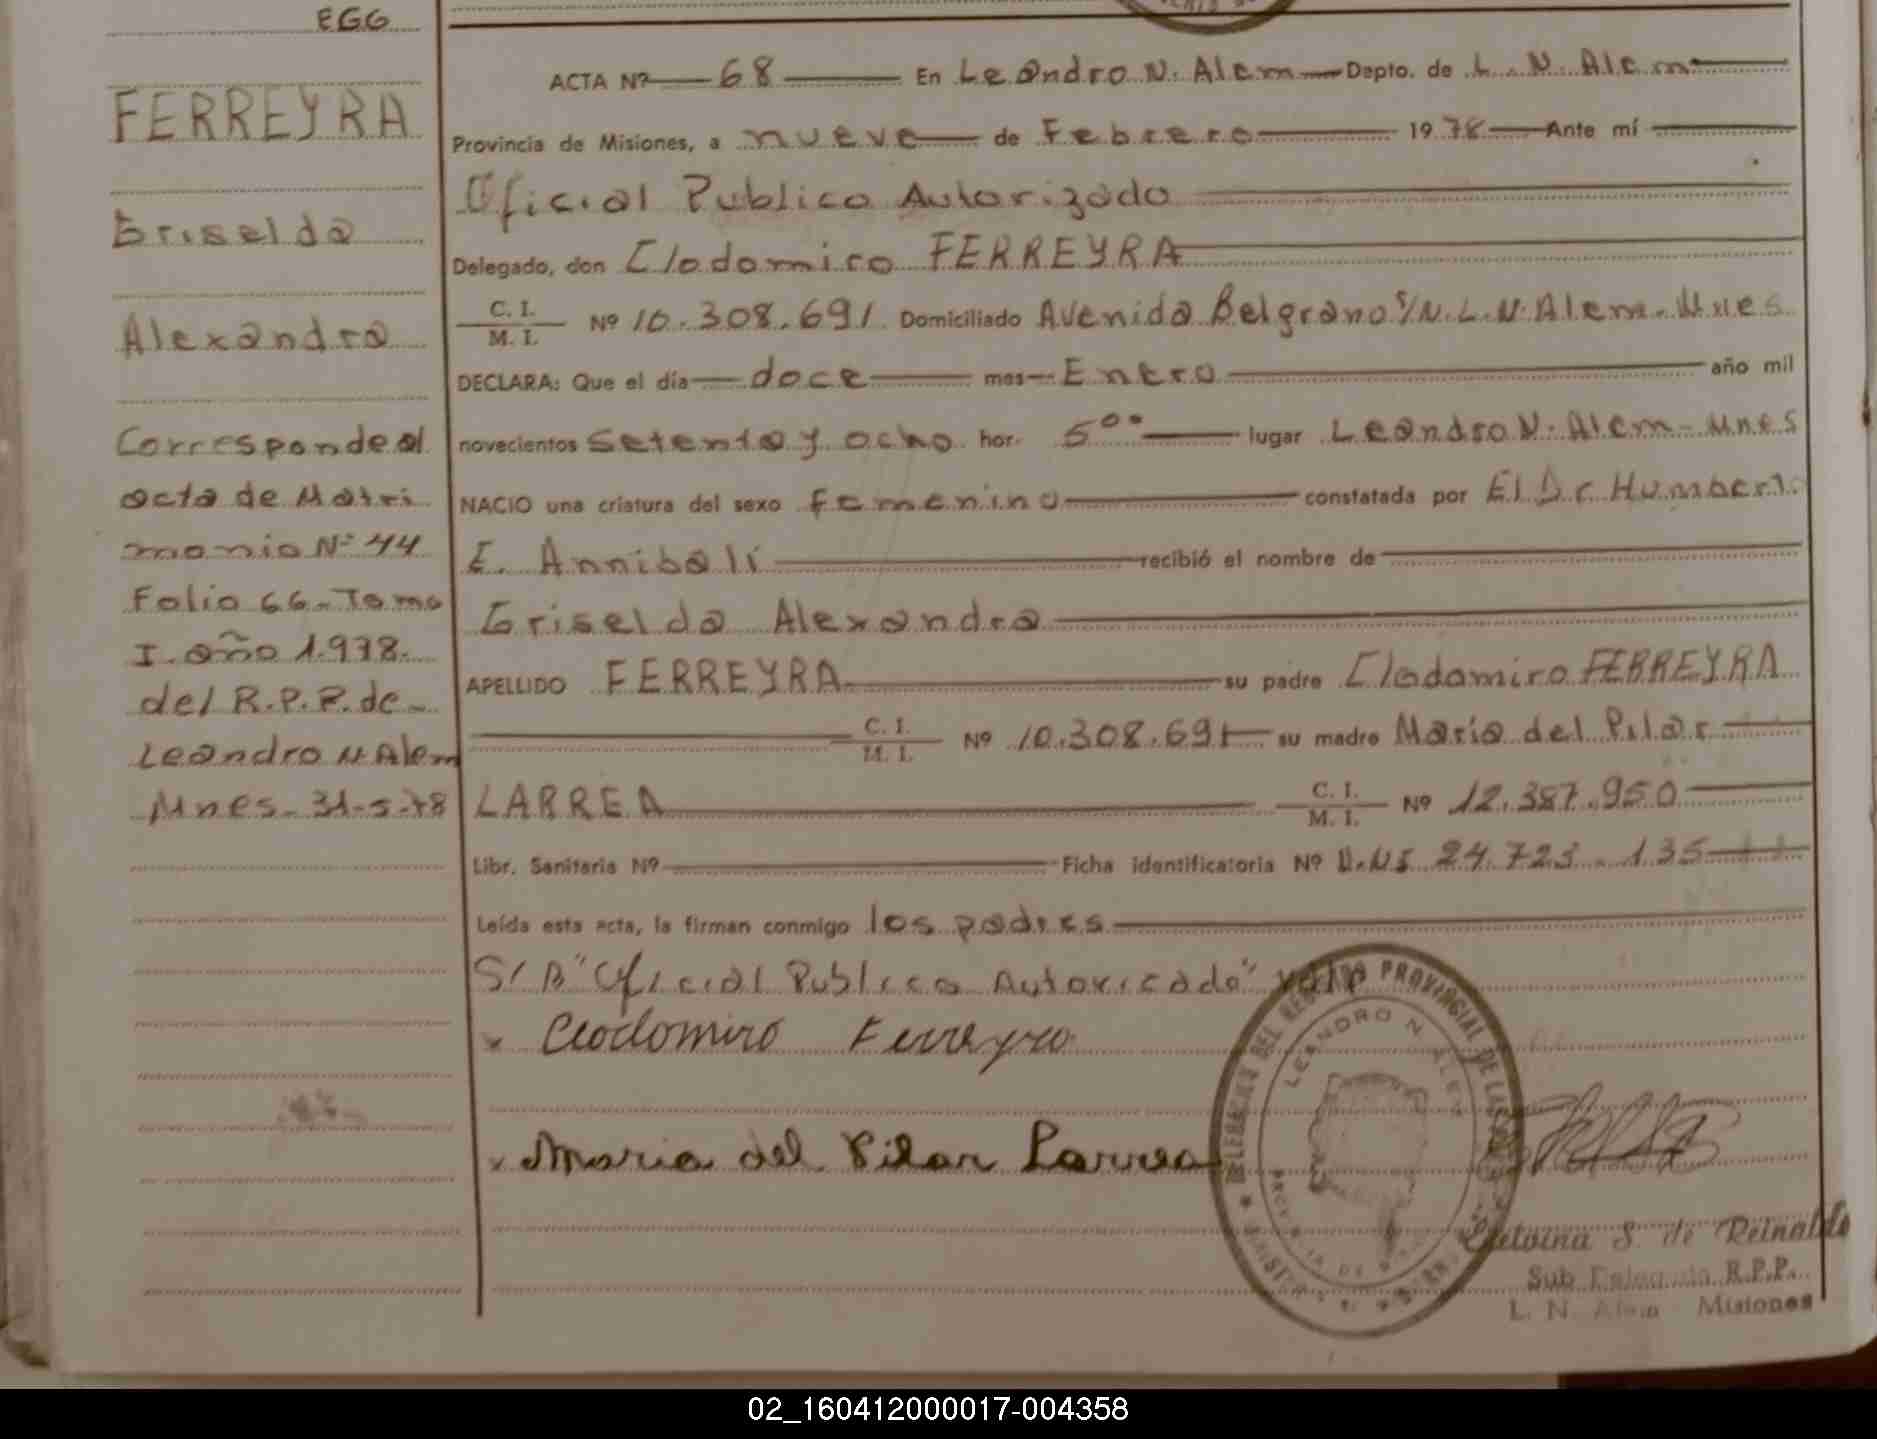 EGG
FERREYRA
Griselda
Alexandra
Corresponde al
acta de Matri
monio Nº 44
Folio 66 - Tomo
I. año 1.978.
del R.P.P. de
Leandro N Alem
Mnes - 31-5-78
ACTA Nº 68 En Leandro N. Alem Depto. de L. N. Alem
Provincia de Misiones, a nueve de Febrero 1978 Ante mí
Oficial Publico Autorizado
Delegado, don Clodomiro FERREYRA
C. I.
M. I. Nº 10.308.691 Domiciliado Avenida Belgrano S/N. L. N. Alem. Mnes
DECLARA: Que el día doce mes Enero año mil
novecientos Setenta y ocho hor. 5°° lugar Leandro N. Alem - Mnes
NACIO una criatura del sexo femenino constatada por El Dr Humberto
E. Annibali recibió el nombre de
Griselda Alexandra
APELLIDO FERREYRA su padre Clodomiro FERREYRA
C. I.
M. I. Nº 10.308.691 su madre Maria del Pilar
LARREA C. I.
M. I. Nº 12.387.950
Libr. Sanitaria Nº Ficha identificatoria Nº D.NI 24.723.135
Leída esta acta, la firman conmigo los padres
S/B "Oficial Publico Autoricado" vale
x Clodomiro Ferreyra
x Maria del Pilar Larrea
DELEGACION DEL REGISTRO PROVINCIAL DE LAS
LEANDRO N. ALEM
S. de Reinaldo
Sub Delegada R.P.P.
L. N. Alem Misiones
02_160412000017-004358